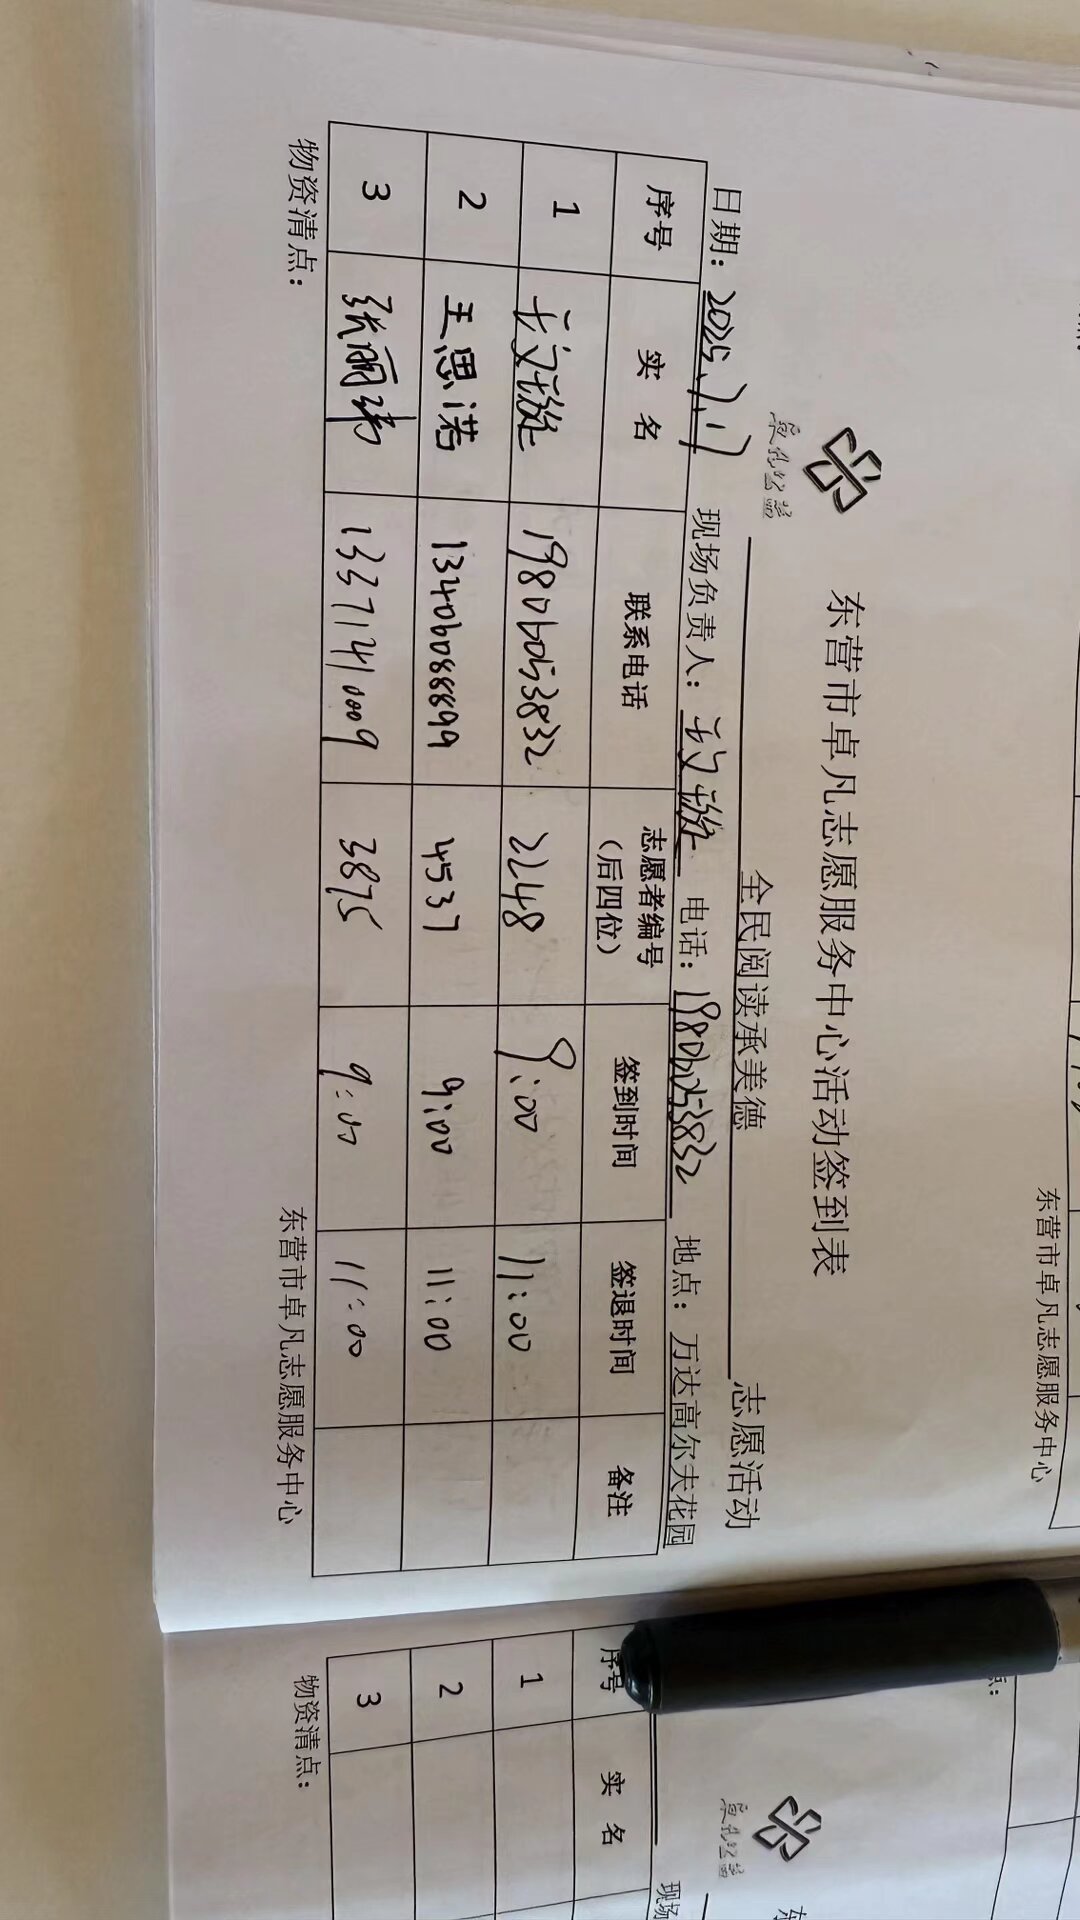 卓凡公益
东营市卓凡志愿服务中心活动签到表
全民阅读承美德 志愿活动
日期: 2025. 现场负责人: 电话: 19806053832 地点: 万达高尔夫花园
序号 实 名 联系电话 志愿者编号(后四位) 签到时间 签退时间 备注
1 19806053832 2248 9:00 11:00
2 王思诺 13406088899 4537 9:00 11:00
3 张丽娟 13371410009 3875 9:00 11:00
物资清点: 东营市卓凡志愿服务中心
东营市卓凡志愿服务中心
卓凡公益
现场
序号 实 名
1
2
3
物资清点: